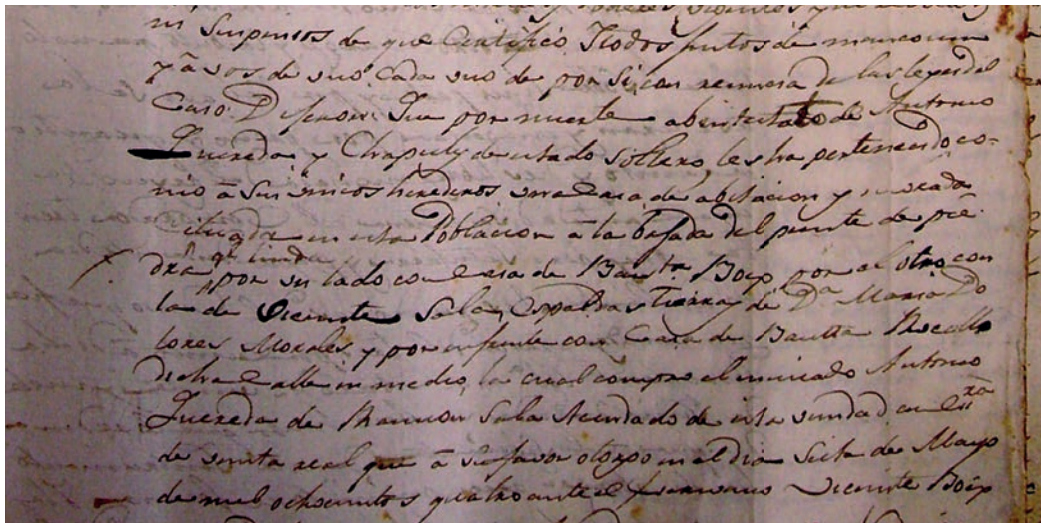 ni suspensos de que Certifico. Y todos juntos de mancomun
y â vos de uno, cada uno de por si con renuncia de las leyes del
Caso: Dijeron: Que por muerte abintestato de Antonio
Quereda y Chapuly de estado Soltero les ha pertenecido co-
mo â sus unicos herederos una Casa de abitacion y morada
Cituada en esta Poblacion a la bajada del puente de pie
que linda
dra por un lado con Casa de Bauta Boix, por el otro con
la de Vicente Sala, Espaldas tierras de Da Maria Do
lores Morales, y por enfrente con Casa de Bautta
dicha Calle en medio, la cual compro el Antonio
Quereda de Ramon Sala Acendado de esta vecindad con Esra
de venta real que â su favor otorgo en el dia Siete de Mayo
de mil ochocientos quatro ante el Vicente Boix